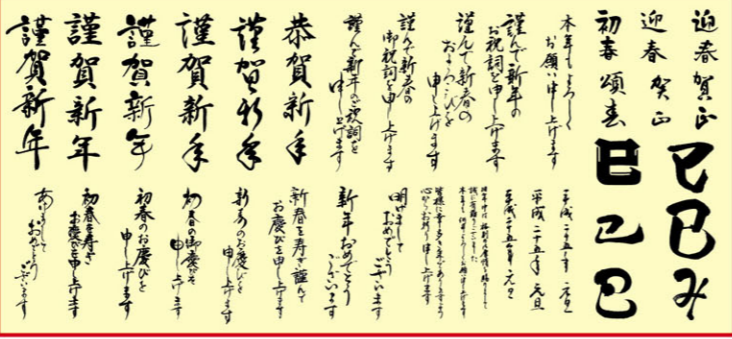 迎春賀正
迎春
賀正
初春
頌春
本年もよろしく
お願い申し上げます
謹んで新年の
お祝詞を申し上げます
謹んで新春の
およろこびを
申し上げます
謹んで新春の
御祝詞を申し上げます
謹んで新年のご祝詞を
申し上げます
恭賀新年
謹賀新年
謹賀新年
謹賀新年
謹賀新年
謹賀新年
巳
巳
み
巳
巳
巳
平成二十五年 元旦
平成二十五年 元旦
平成二十五年 元旦
皆様に幸多き年でありますよう
心からお祈り申し上げます
明けまして
おめでとう
ございます
新年おめでとう
ございます
新春を寿ぎ謹んで
お慶びを申し上げます
新春のお慶びを
申し上げます
初春の御慶びを
申し上げます
初春のお慶びを
申し上げます
初春を寿ぎ
お慶びを申し上げます
あけまして
おめでとう
ございます